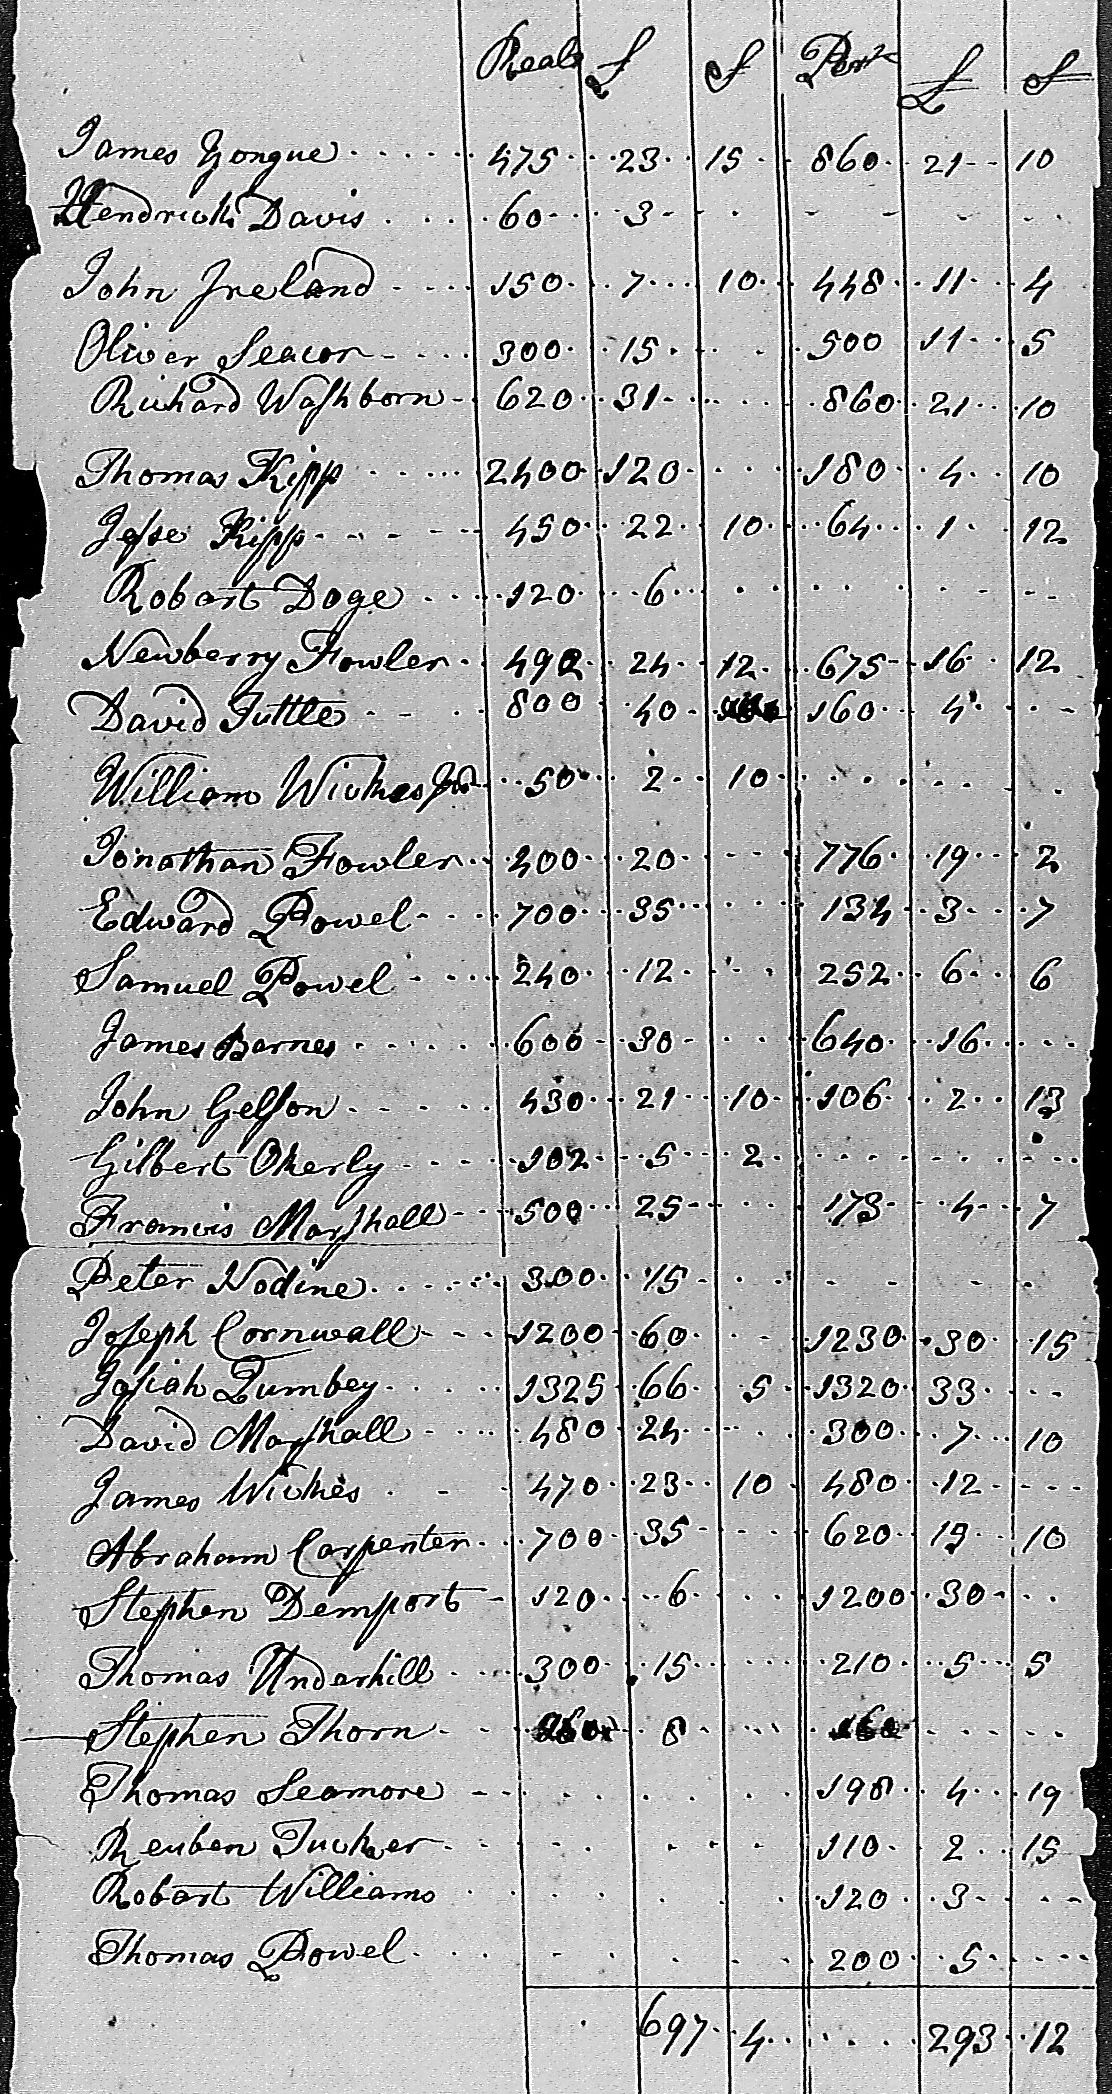 Reals £ S Perl £ S
James Yongue 475 23 15 860 21 10
Hendrick Davis 60 3
John Ireland 150 7 10 448 11 4
Oliver Seacor 300 15 500 11 5
Richard Washborn 620 31 860 21 10
Thomas Kipp 2400 120 180 4 10
Jesse Kipp 450 22 10 64 1 12
Robart Doge 120 6
Newberry Fowler 492 24 12 675 16 12
David Tuttle 800 40 160 4
William Wickes Jur 50 2 10
Jonathan Fowler 400 20 776 19 2
Edward Powel 700 35 134 3 7
Samuel Powel 240 12 252 6 6
James Barnes 600 30 640 16
John Gelson 430 21 10 106 2 13
Gilbert Okerly 102 5 2
Francis Marshall 500 25 173 4 7
Peter Nodine 300 15
Joseph Cornwall 1200 60 1230 30 15
Josiah Qumbey 1325 66 5 1320 33
David Marshall 480 24 300 7 10
James Wickes 470 23 10 480 12
Abraham Carpenter 700 35 620 19 10
Stephen Demport 120 6 1200 30
Thomas Underhill 300 15 210 5 5
Stephen Thorn 8
Thomas Seamore 198 4 19
Reuben Tucker 110 2 15
Robart Williams 120 3
Thomas Powel 200 5
697 4 293 12